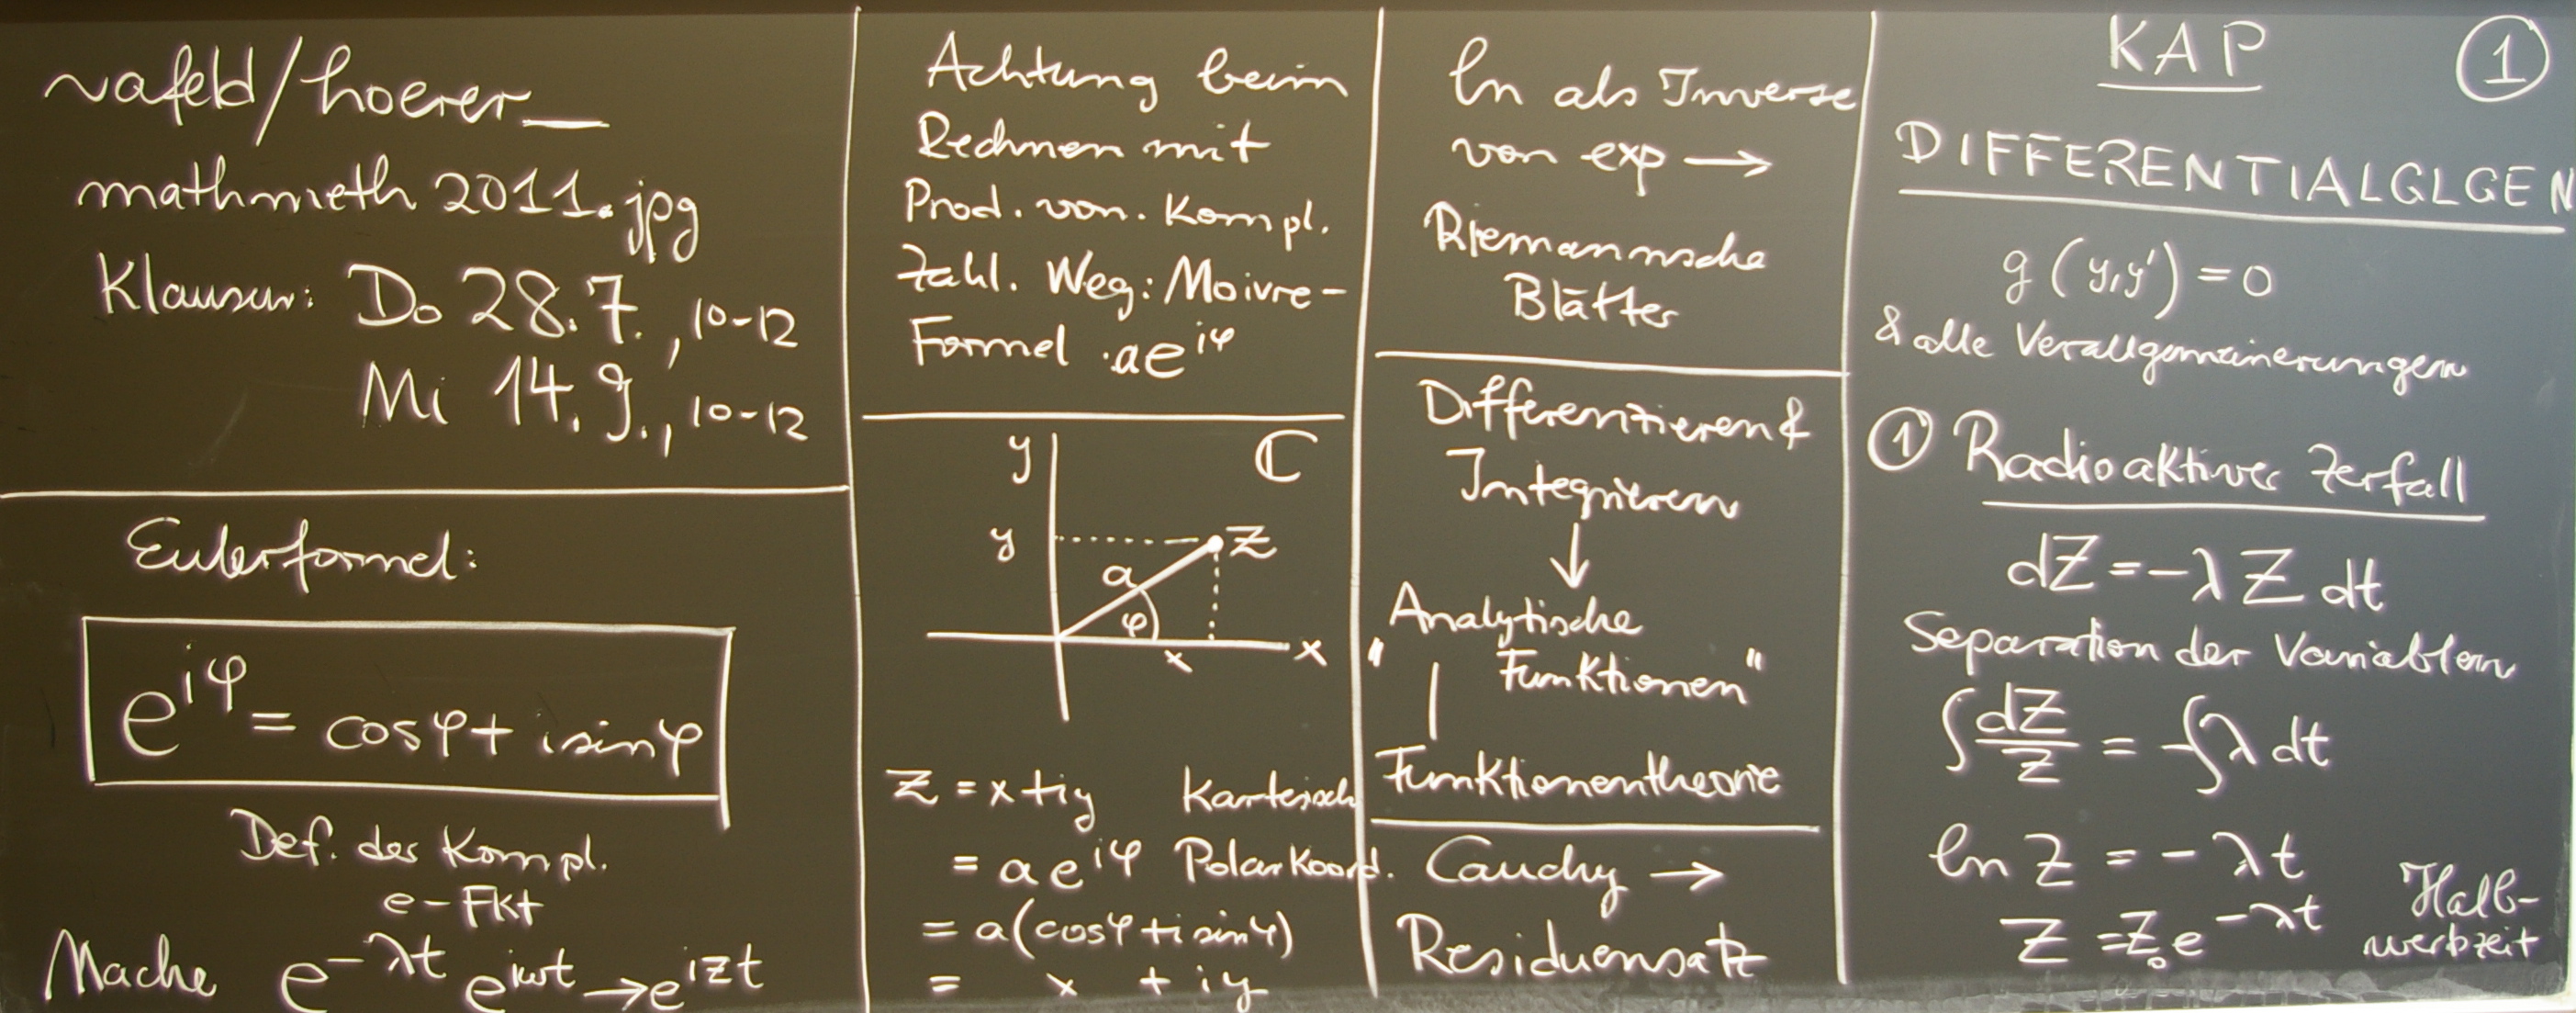 vafeld/hoerer_
mathmeth 2011.jpg
Klausur: Do 28.7., 10-12
Mi 14.9., 10-12
Eulerformel:
e^{iφ} = cosφ + i sinφ
Def. der Kompl.
e-Fkt
Mache e^{-λt} e^{iωt} → e^{izt}
Achtung beim
Rechnen mit
Prod. von. Kompl.
Zahl. Weg: Moivre-
Formel · ae^{iφ}
y ℂ
y z
a
φ
x x
z = x+iy Kartesisch
= a e^{iφ} Polarkoord.
= a(cosφ+i sinφ)
= x + iy
ln als Inverse
von exp →
Riemannsche
Blätter
Differenzieren &
Integrieren
↓
"Analytische
Funktionen"
|
Funktionentheorie
Cauchy →
Residuensatz
KAP ①
DIFFERENTIALGLGEN
g(y,y') = 0
& alle Verallgemeinerungen
① Radioaktiver Zerfall
dZ = -λ Z dt
Separation der Variablen
∫ dZ/Z = -∫ λ dt
ln Z = -λt
Z = Z₀ e^{-λt} Halb-
wertzeit